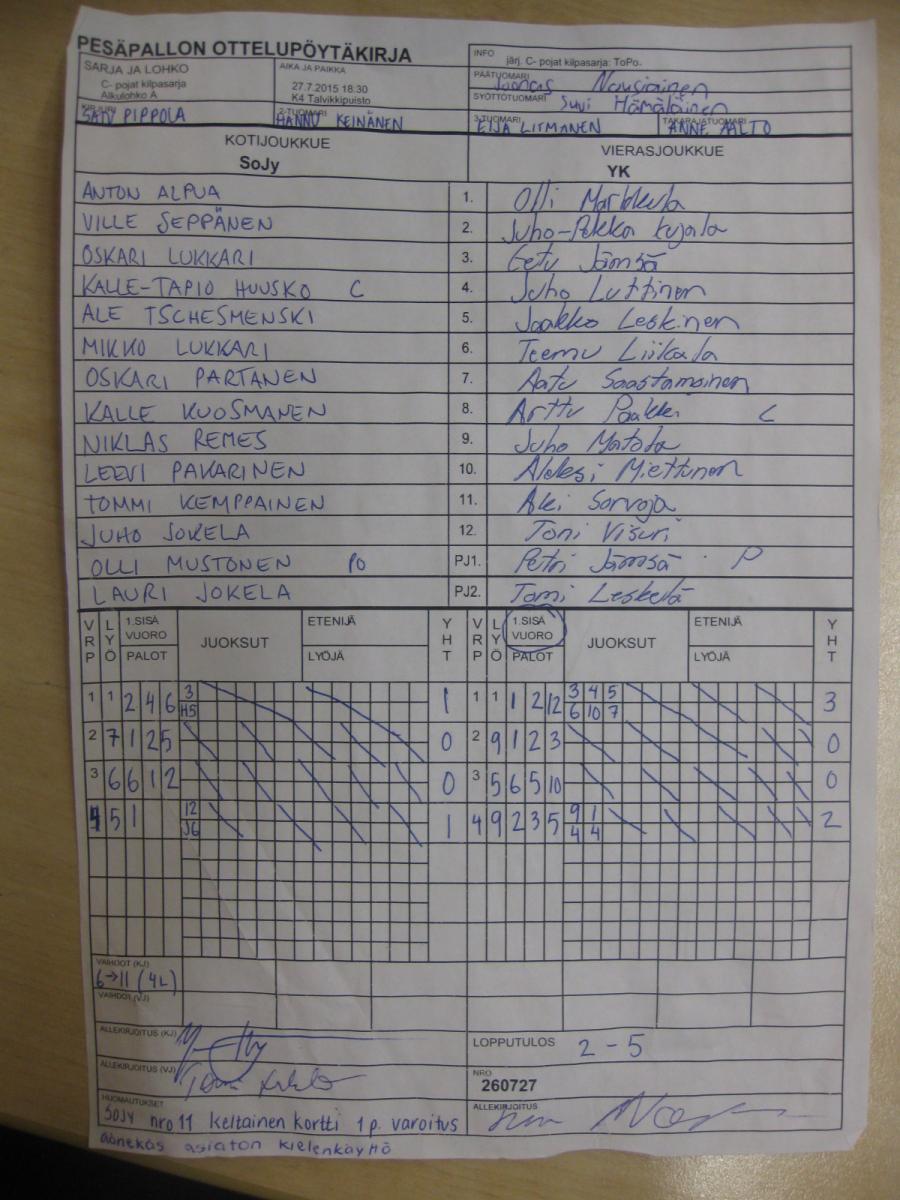 PESÄPALLON OTTELUPÖYTÄKIRJA
INFO järj. C- pojat kilpasarja: ToPo.
SARJA JA LOHKO
C- pojat kilpasarja
Alkulohko A
AIKA JA PAIKKA
27.7.2015 18.30
K4 Talvikkipuisto
PÄÄTUOMARI Joonas Nousiainen
SYÖTTÖTUOMARI Suvi Hämäläinen
KIRJURI SATU PIPPOLA
2-TUOMARI HANNU KEINÄNEN
3-TUOMARI EIJA LITMANEN
TAKARAJATUOMARI ANNE AALTO
KOTIJOUKKUE
SoJy
VIERASJOUKKUE
YK
ANTON ALPUA 1. Olli Markkula
VILLE SEPPÄNEN 2. Juho-Pekka Kujala
OSKARI LUKKARI 3. Eetu Jämsä
KALLE-TAPIO HUUSKO C 4. Juho Luttinen
ALE TSCHESMENSKI 5. Jaakko Leskinen
MIKKO LUKKARI 6. Teemu Liikala
OSKARI PARTANEN 7. Aatu Saastamoinen
KALLE KUOSMANEN 8. Arttu Paakki C
NIKLAS REMES 9. Juho Matola
LEEVI PAKARINEN 10. Aleksi Miettunen
TOMMI KEMPPAINEN 11. Aki Sorvoja
JUHO JOKELA 12. Toni Visuri
OLLI MUSTONEN PO PJ1. Petri Jämsä P
LAURI JOKELA PJ2. Tomi Leskelä
VRP LYÖ 1.SISÄ VUORO PALOT JUOKSUT ETENIJÄ LYÖJÄ YHT VRP LYÖ 1.SISÄ VUORO PALOT JUOKSUT ETENIJÄ LYÖJÄ YHT
1 1 2 4 6 3 H5 1 1 1 1 2 12 3 4 5 6 10 7 3
2 7 1 2 5 0 2 9 1 2 3 0
3 6 6 1 2 0 3 5 6 5 10 0
4 5 1 12 J6 1 4 9 2 3 5 9 1 4 4 2
VAIHDOT (KJ)
6→11 (4L)
VAIHDOT (VJ)
ALLEKIRJOITUS (KJ)
LOPPUTULOS 2 - 5
ALLEKIRJOITUS (VJ)
NRO
260727
HUOMAUTUKSET
ALLEKIRJOITUS
SOJY nro 11 keltainen kortti 1 p. varoitus
äänekäs asiaton kielenkäyttö